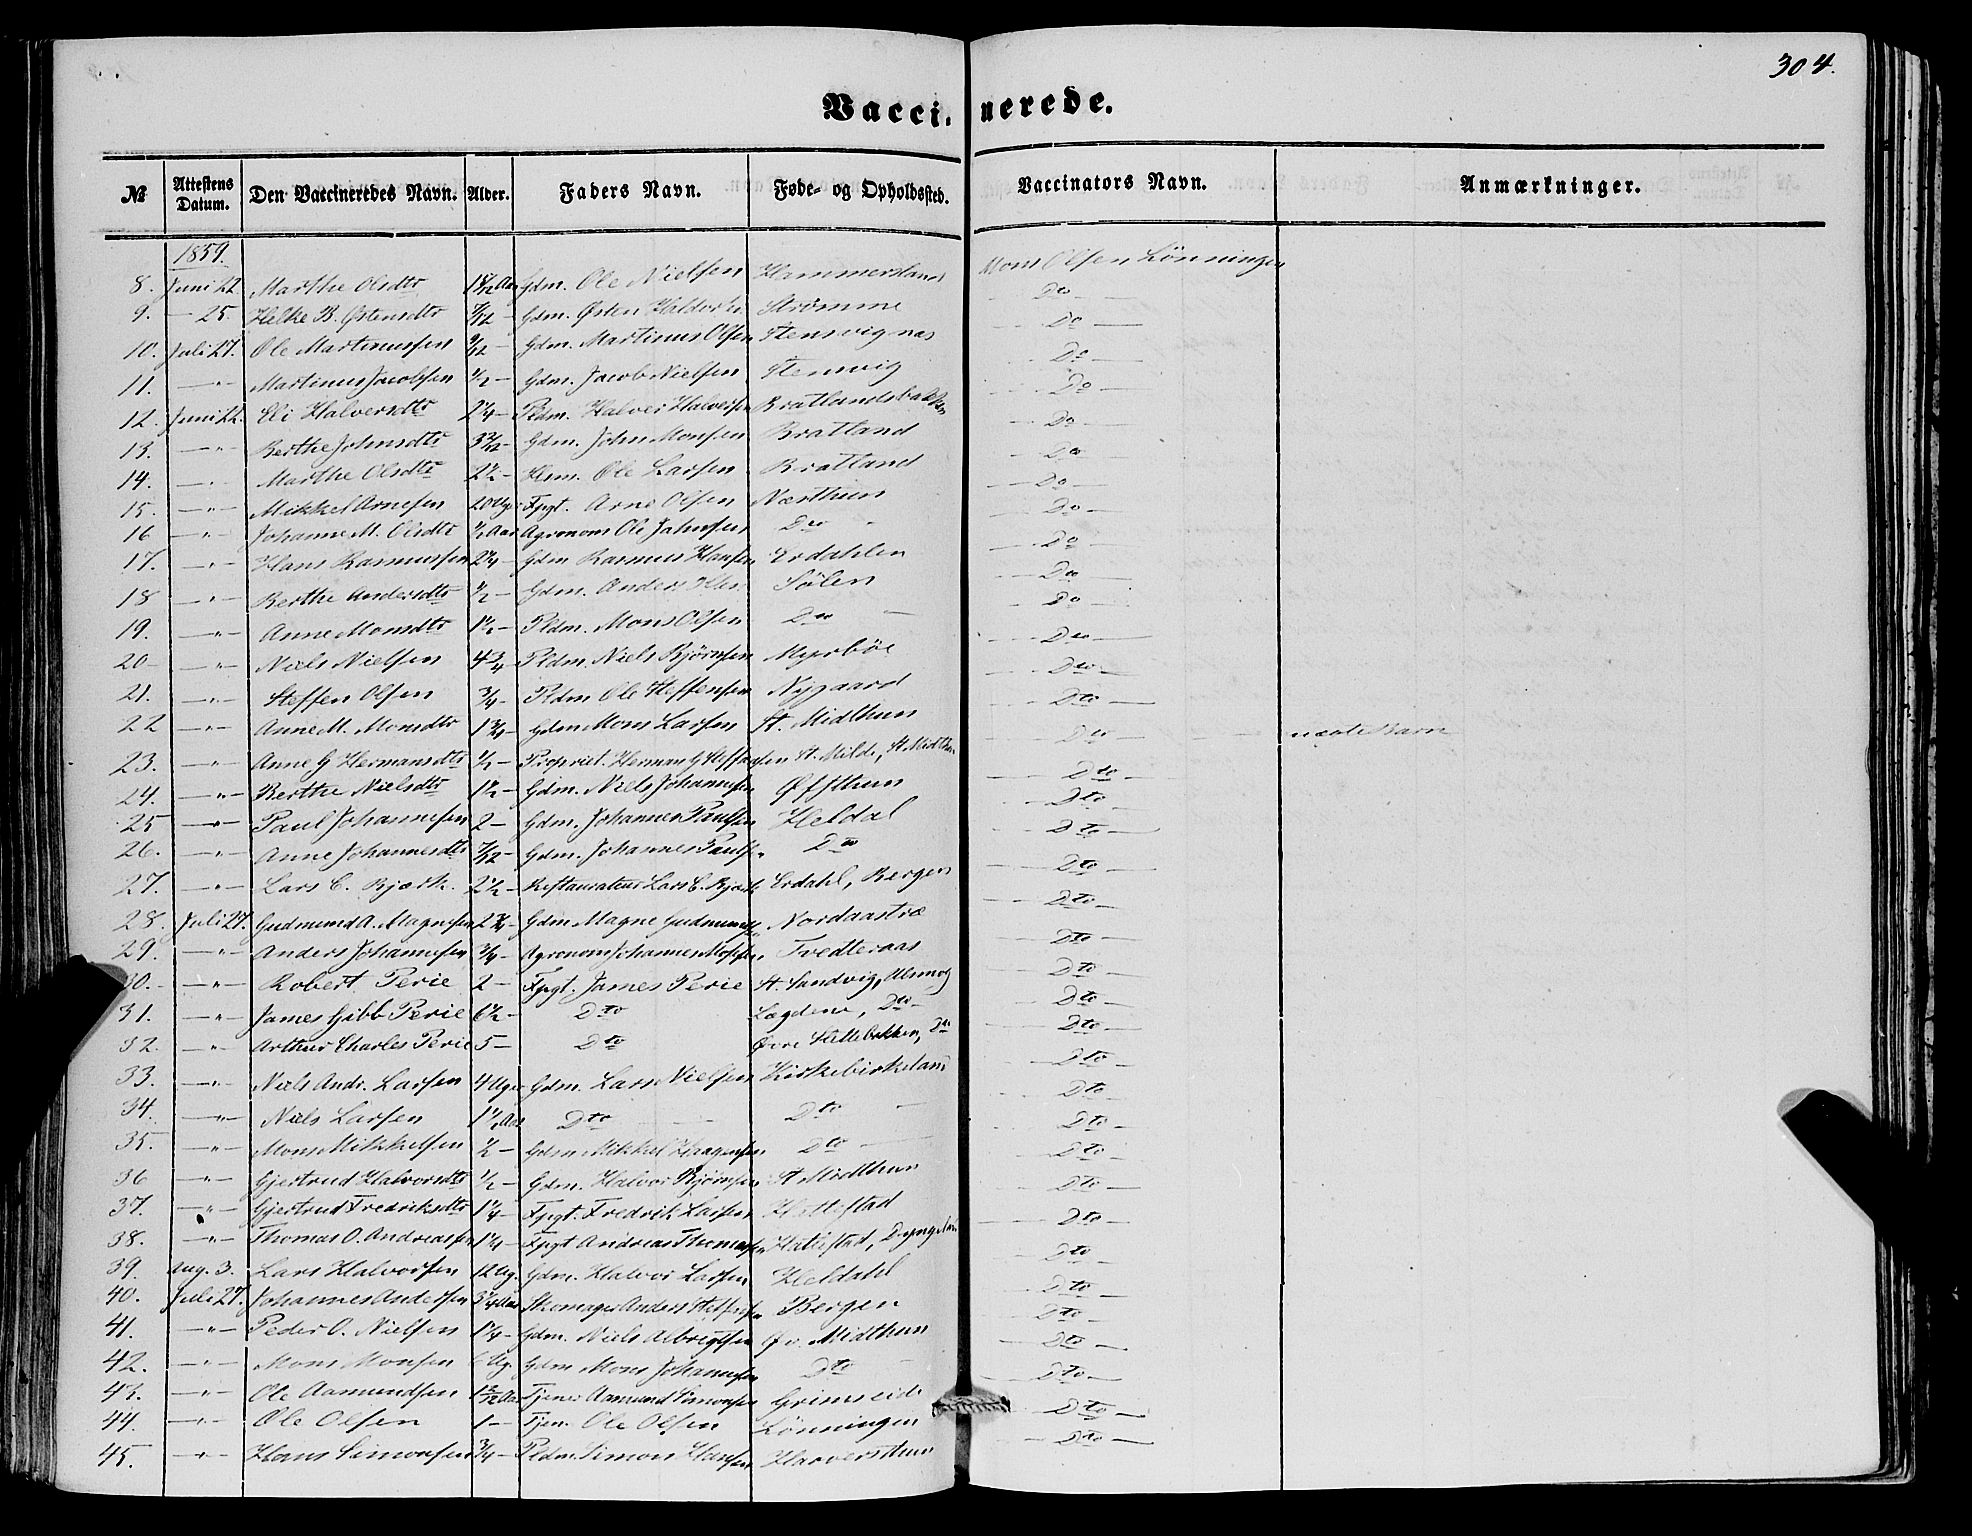 304.
Vaccinerede.
№ Attestens Datum. Den Vaccineredes Navn. Alder. Faders Navn. Føde- og Opholdssted. Vaccinators Navn. Anmærkninger.
1859.
8. Juni 22 Marthe Olsdtr Gdm. Ole Nielsen Hammersland Mons Olsen Lönningen
9. — 25. Helke B. Østensdtr 7/12 — Gdm. Østen Strömme Do —
10. Juli 27. Ole Martinussen 9/12 — Gdm. Martinus Olsen Stensvignes Do —
11. —"— Martinus Jacobsen 1/2 — Gdm. Jacob Nielsen Stensvig Do —
12. Juni 22. Eli Halversdtr 2 1/4 — Pldm. Halver Halversen Bratlandsbakken Do —
13. —"— Berthe Johnsdtr Gdm. John Monsen Bratland Do —
14. —"— Marthe Olsdtr 2 1/2 — Hsm. Ole Larsen Bratland Do —
15. —"— Mikkel Arnesen 20 Uger Fpgt. Arne Olsen Næsthun Do —
16 —"— Johanne M. Olsdtr 1/2 Aar Agronom Ole Jahnsen Do — Do —
17. —"— Hans Rasmussen 2 1/4 — Gdm Rasmus Hansen Erdahlen Do —
18 —"— Berthe Andersdtr 1/2 — Gdm. Anders Sölen Do —
19. —"— Anne Monsdtr 1 1/2 — Pldm. Mons Olsen Do — Do —
20 —"— Niels Nielsen 4 3/4 Pldm. Niels Björnsen Myrböe Do —
21. —"— Steffen Olsen 3/4 — Pldm Ole Steffensen Nygaard Dto —
22 —"— Anne M. Monsdtr 1 3/4 — Gdm Mons Larsen St. Midthun Dto —
23. —"— Anne G Hermansdtr 1/2 — Propriet. Herman G Steffensen St. Milde, St. Midthun Do — uægte Barn
24. —"— Berthe Nielsdtr 1 1/2 — Gdm. Niels Johannesen Øfsthun Dto —
25 —"— Paul Johannesen 2 — Gdm. Johannes Paulsen Heldal Dto —
26. —"— Anne Johannesdtr 7/12 — Gdm. Johannes Paulsen Do Dto —
27. —"— Lars C. Bjørk. 2 1/2 — Restaurateur Lars C. Bjørk Erdahl, Bergen Dto —
28. Juli 27. Gudmund A. Magnesen Gdm Magne Gudmunds. Nordaastræ Dto —
29. —"— Anders Johannesen 3/4 — Agronom Johannes Tvedteraas Dto —
30. —"— Robert Perie 2 — Fpgt. James Perie St. Sandvig, Dto —
31. —"— James Gibb Perie 6 1/2 — Dto Lægdene, Dto — Dto —
32. —"— Arthur Charles Perie 5 — Dto Øvre Dto Dto —
33. —"— Niels Andr. Larsen 4 Uger Gdm. Lars Nielsen Kirkebirkeland Dto —
34. —"— Niels Larsen 1 1/2 Aar Dto Dto Dto —
35. —"— Mons Mikkelsen 1/2 — Gdm Mikkel Haagensen Dto — Dto —
36 —"— Gjertrud Halvorsdtr 1/2 — Gdm. Halvor Björnsen St Midthun Dto —
37. —"— Gjertrud Fredriksdtr 1 1/4 — Fpgt. Fredrik Larsen Hattestad Dto —
38. —"— Thomas O. Andreassen 1 1/4 — Fpgt Andreas Thomassen Hattestad, Dyngeland Dto —
39. Aug. 3. Lars Halvorsen 12 Ug. Gdm. Halvor Larsen Heldahl Dto —
40. Juli 27. Johannes Andersen 3 1/4 Aar Skomager Anders Bergen Dto —
41. —"— Peder O. Nielsen 1 1/4 — Gdm. Niels Albrigtsen Øv. Midthun Dto —
42. —"— Mons Monsen 6 Ug. Gdm Mons Johannesen Dto Dto —
43. —"— Ole Aamundsen Tjener Aamund Simonsen Grimseide Dto —
44. —"— Ole Olsen 1 — Tjen. Ole Olsen Lönningen Dto —
45. —"— Hans Simonsen 3/4 — Pldm. Simon Hansen Harversthun Dto —